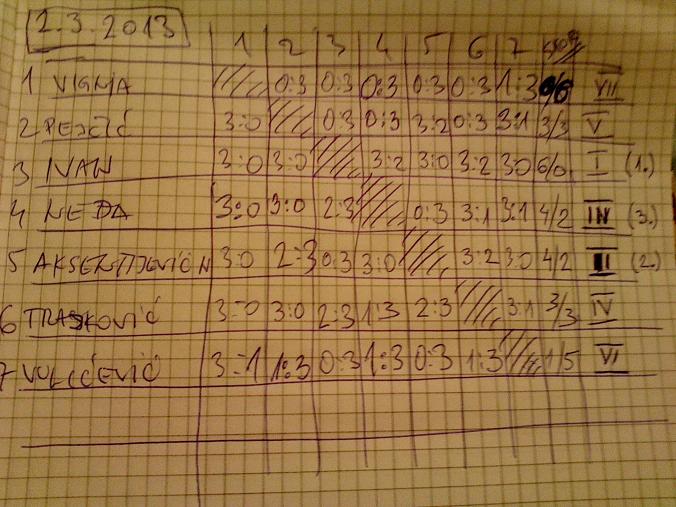 2.3.2013
1 2 3 4 5 6 7
1 VIGMA 0:3 0:3 0:3 0:3 0:3 1:3 0/6 VII
2 PEJČIĆ 3:0 0:3 0:3 3:2 0:3 3:1 3/3 V
3 IVAN 3:0 3:0 3:2 3:0 3:2 3:0 6/0 I (1.)
4 NEĐA 3:0 3:0 2:3 0:3 3:1 3:1 4/2 III (3.)
5 AKSENTIJEVIĆ N 3:0 2:3 0:3 3:0 3:2 3:0 4/2 II (2.)
6 TRASKOVIĆ 3:0 3:0 2:3 1:3 2:3 3:1 3/3 IV
7 VULIĆEVIĆ 3:1 1:3 0:3 1:3 0:3 1:3 1/5 VI